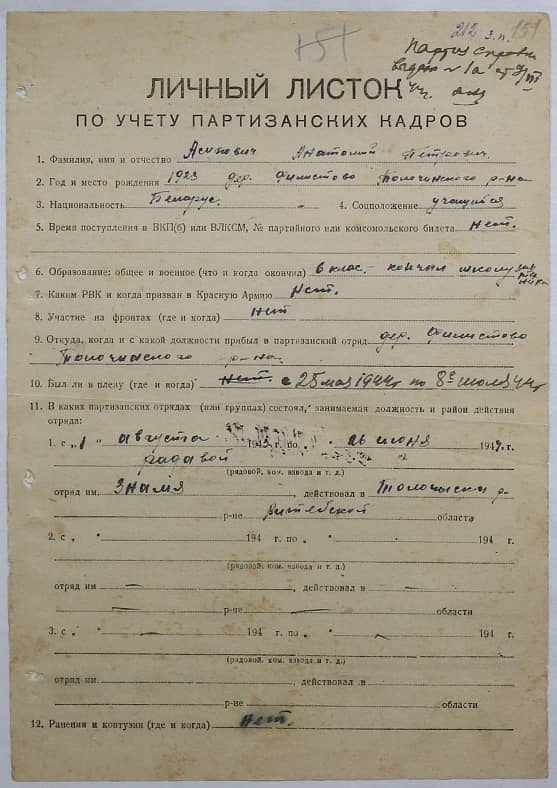 151
212 з.п. 151
Партиз справка
выдан № 1а
ЛИЧНЫЙ ЛИСТОК
ПО УЧЕТУ ПАРТИЗАНСКИХ КАДРОВ
1. Фамилия, имя и отчество Анатолий Петрович.
2. Год и место рождения 1923 дер. Филистово Толочинского р-на
3. Национальность Беларус. 4. Соцположение учащийся
5. Время поступления в ВКП(б) или ВЛКСМ, № партийного или комсомольского билета нет.
6. Образование: общее и военное (что и когда окончил) 6 клас. кончил школу
7. Каким РВК и когда призван в Красную Армию Нет.
8. Участие на фронтах (где и когда) нет
9. Откуда, когда и с какой должности прибыл в партизанский отряд дер. Филистово
Толочинского р-на.
10. Был ли в плену (где и когда) Нет. с 25 мая 1944г по 8е июля 44г
11. В каких партизанских отрядах (или группах) состоял, занимаемая должность и район действия
отряда:
1. с „1" августа 1943 г. по 26 июня 1944. г.
радавой
(рядовой, ком. взвода и т. д.)
отряд им. Знамя, действовал в Толочински р-
р-не Витебской области
2. с „ " 194 г. по „ " 194 г.
(рядовой, ком. взвода и т. д.)
отряд им — , действовал в —
— р-не — области
3. с „ " — 194 г. по „ " — 194 г.
(рядовой, ком. взвода и т. д.)
отряд им. — , действовал в —
р-не области
12. Ранения и контузии (где и когда) нет.